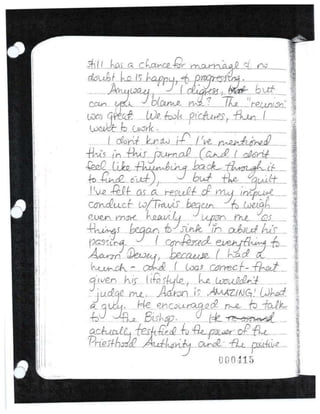 still has a chance for marriage & no
doubt he is happy, & progressing.
Anyway, I digress, but
can you blame me? The "reunion"
was great. We took pictures, then I
went to work.
I don't know if I've mentioned
this in this journal (and I don't
feel like thumbing back through it
to find out), but the guilt
I've felt as a result of my impure
conduct w/Travis began to weigh
even more heavily upon me as
things began to sink in about his
passing. I confessed everything to
Aaron Dewey, because I had a
hunch - and I was correct - that
given his lifestyle, he wouldn't
judge me. Aaron is AMAZING! What
a guy. He encouraged me to talk
to the Bishop. He
actually testified to the power of the
Priesthood Authority and the positive
000415